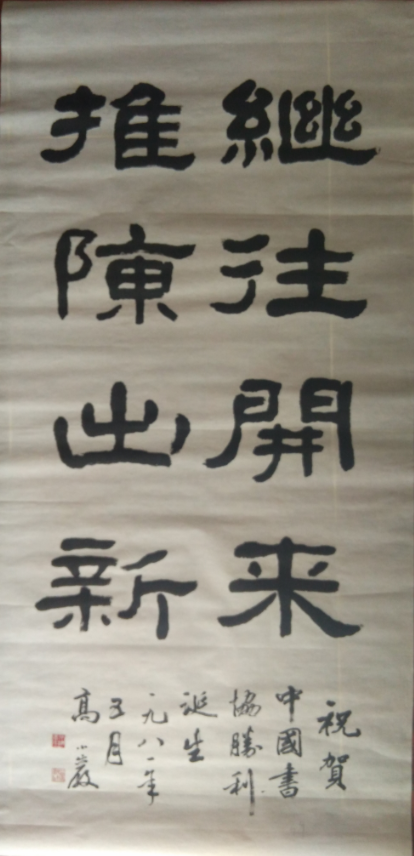 繼往開来
推陳出新
祝賀
中國書
協勝利
誕生
一九八一年
五月
高小巖